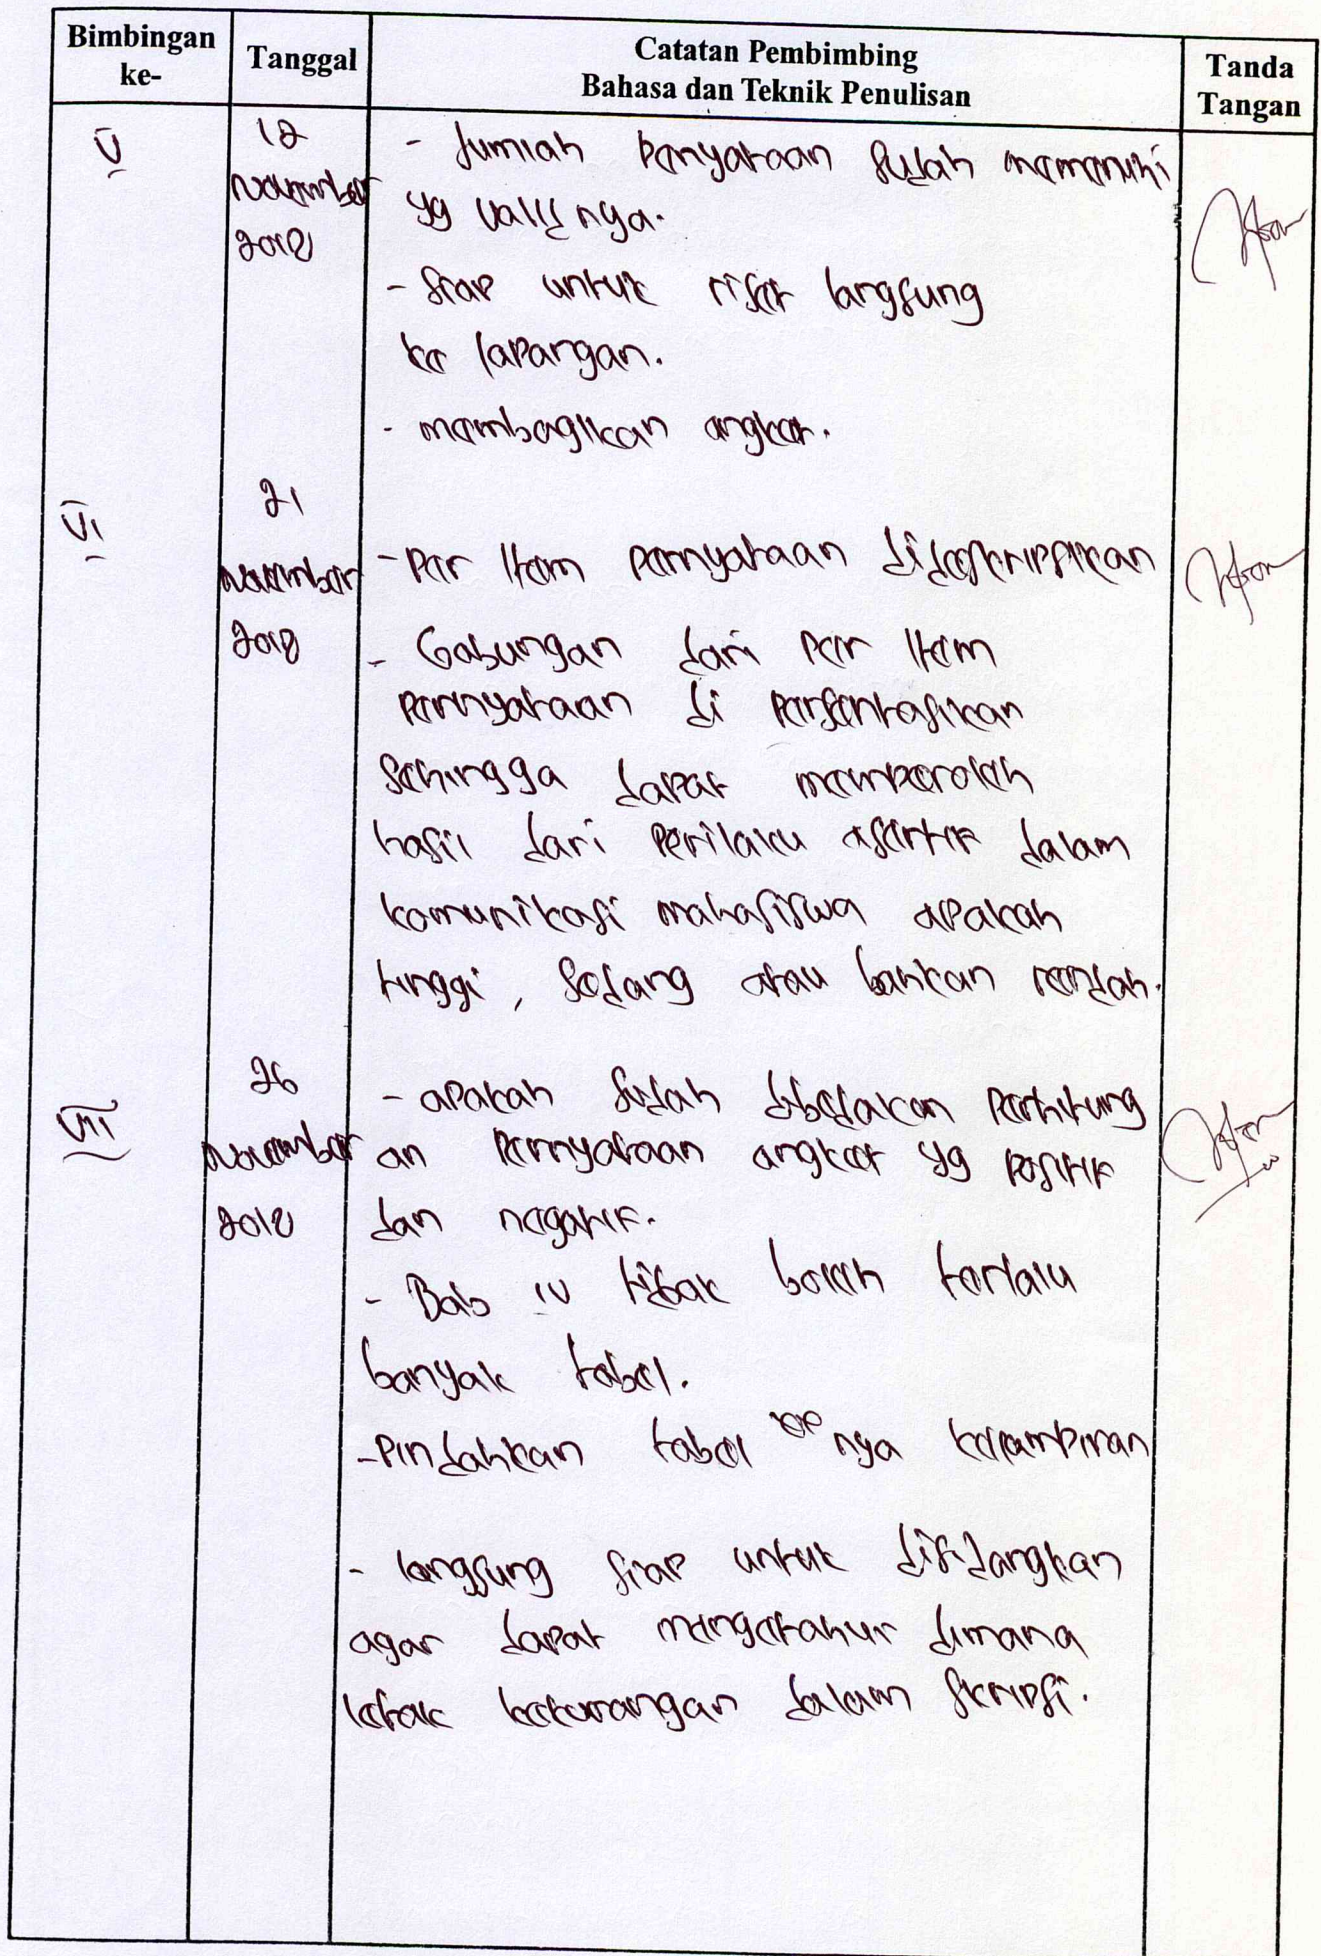 Bimbingan ke-
Tanggal
Catatan Pembimbing
Bahasa dan Teknik Penulisan
Tanda Tangan
V
November
- Jumlah penyataan sudah memenuhi
yg valid nya.
- Siap untuk riset langsung
ke lapangan.
- membagikan angket.
VI
21
November
- Per Item pernyataan dideskripsikan
- Gabungan dari per Item
pernyataan di persentasikan
Sehingga dapat memperoleh
hasil dari perilaku asertif dalam
komunikasi mahasiswa apakah
tinggi, sedang atau bahkan rendah.
VII
26
November
- apakah sudah dibedakan perhitung
an pernyataan angket yg positif
dan negatif.
- Bab IV tidak boleh terlalu
banyak tabel.
- Pindahkan tabel nya kelampiran
- langsung siap untuk disidangkan
agar dapat mengetahui dimana
letak keterangan dalam skripsi.